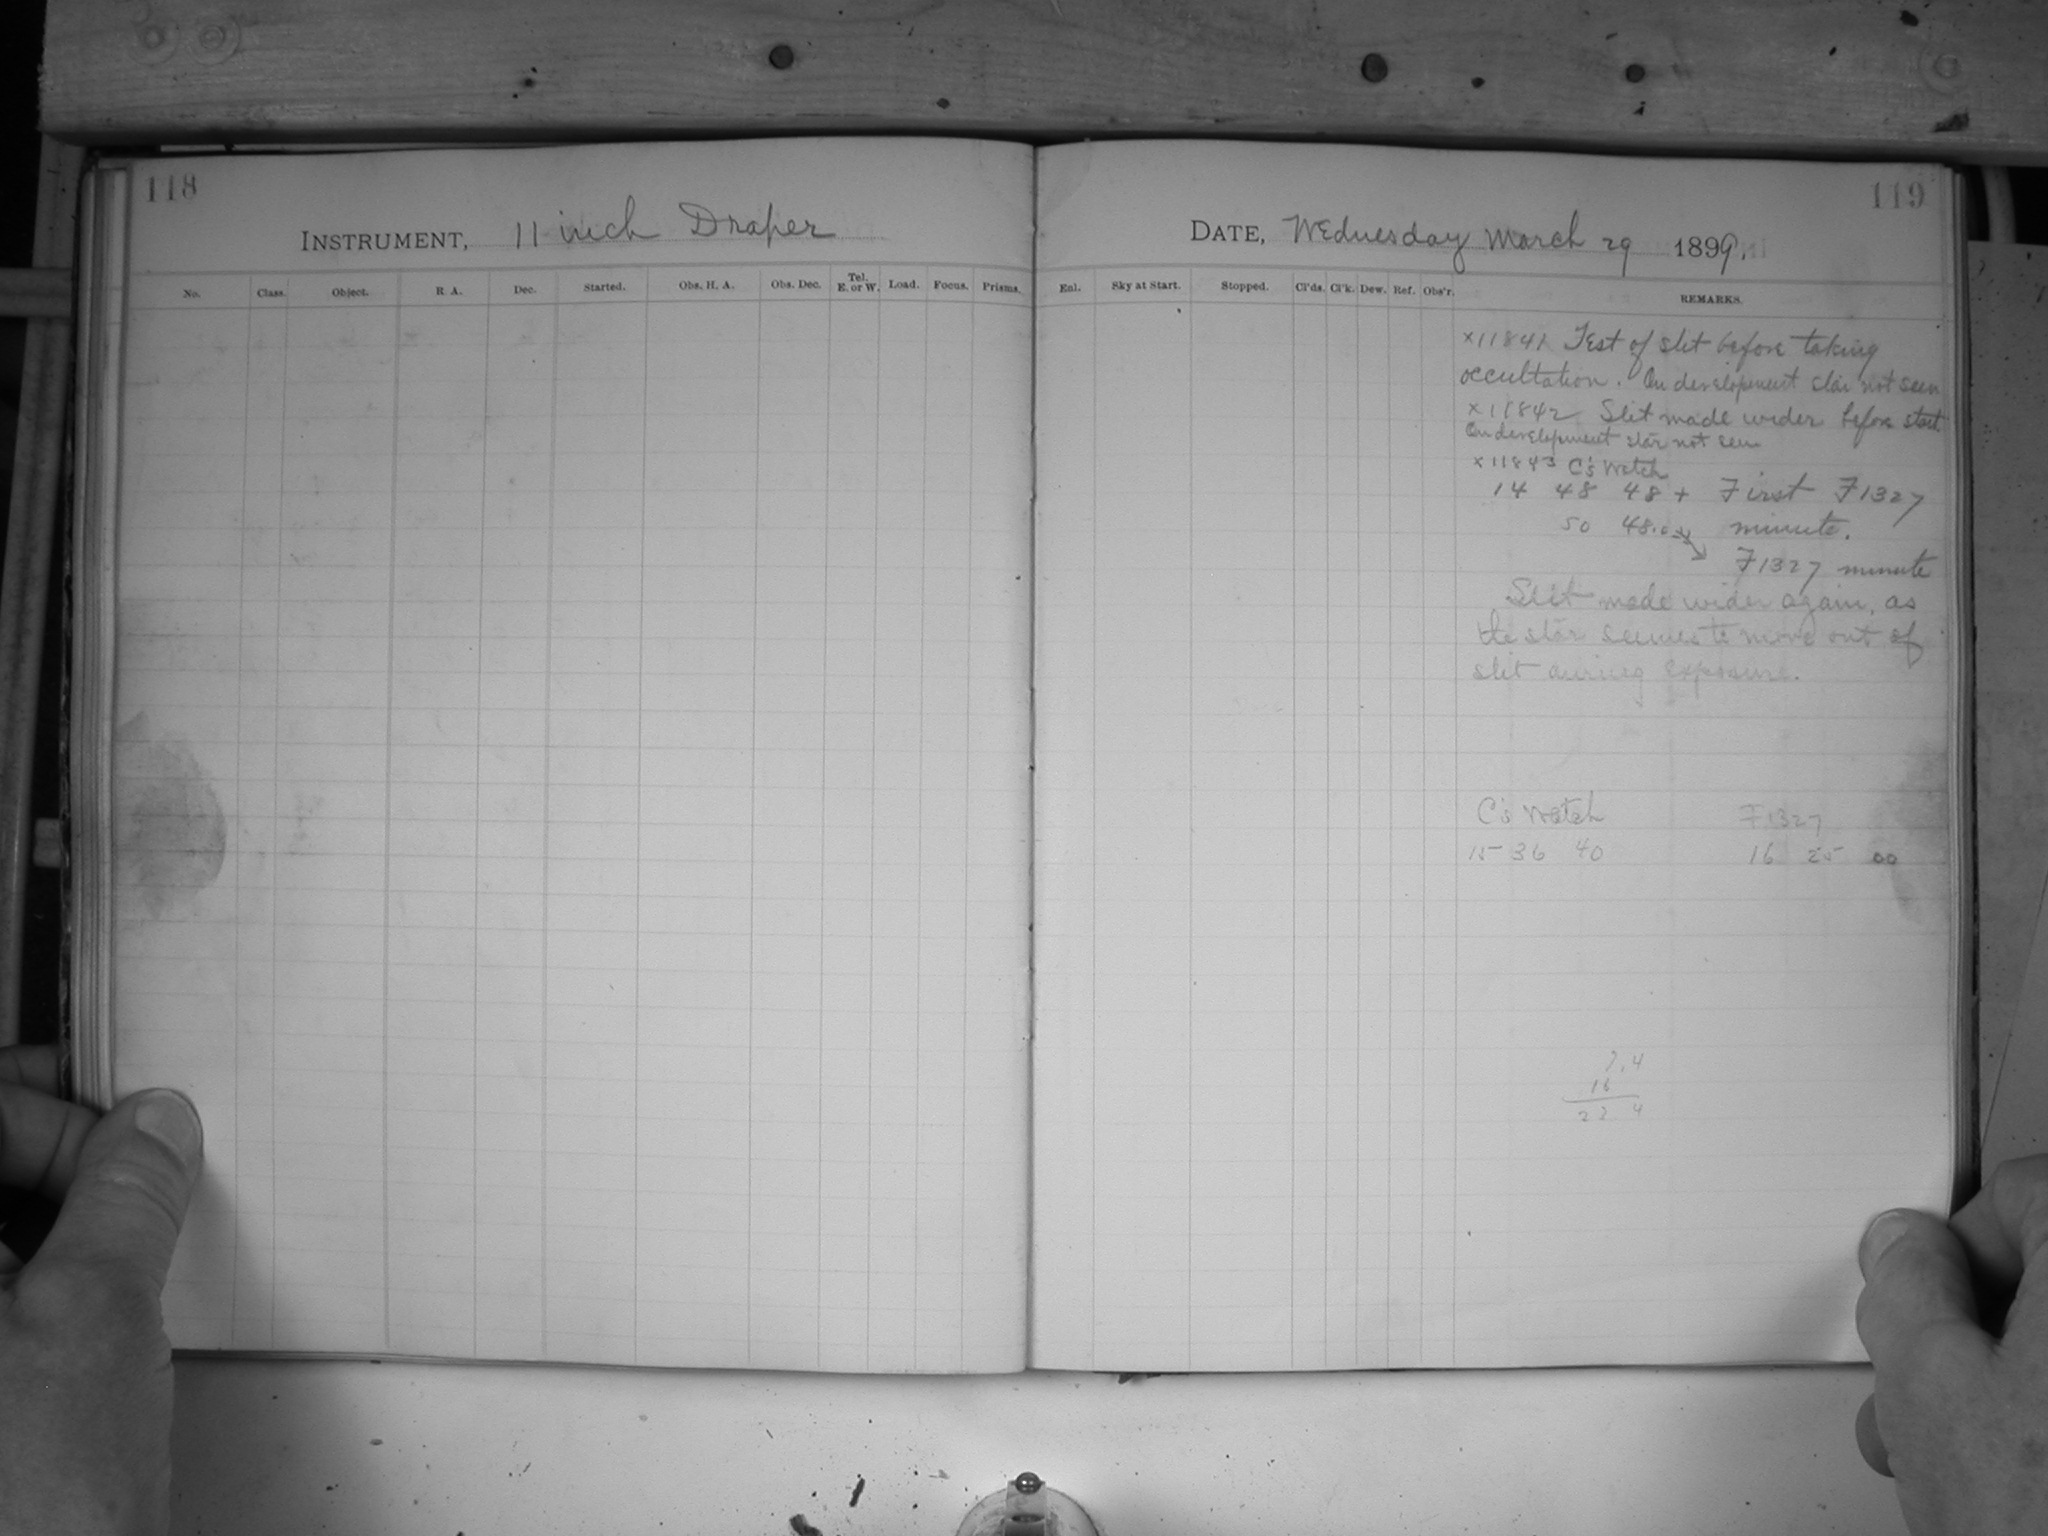 118
INSTRUMENT, 11 inch Draper
No. Class. Object. R. A. Dec. Started. Obs. H. A. Obs. Dec. Tel. E. or W. Load. Focus. Prisms.
119
DATE, Wednesday March 29 1899.
Enl. Sky at Start. Stopped. Cl'ds. Cl'k. Dew. Ref. Obs'r. REMARKS.
x11841 Test of slit before taking
occultation. On development star not seen
x11842 Slit made wider before start.
On development star not seen
x11843 C's Watch
14 48 48 + First F1327
50 48.0 minute.
F1327 minute
Slit made wider again, as
the star seems to move out of
slit during exposure.
C's Watch F1327
15 36 40 16 25 00
7.4
16
23 4